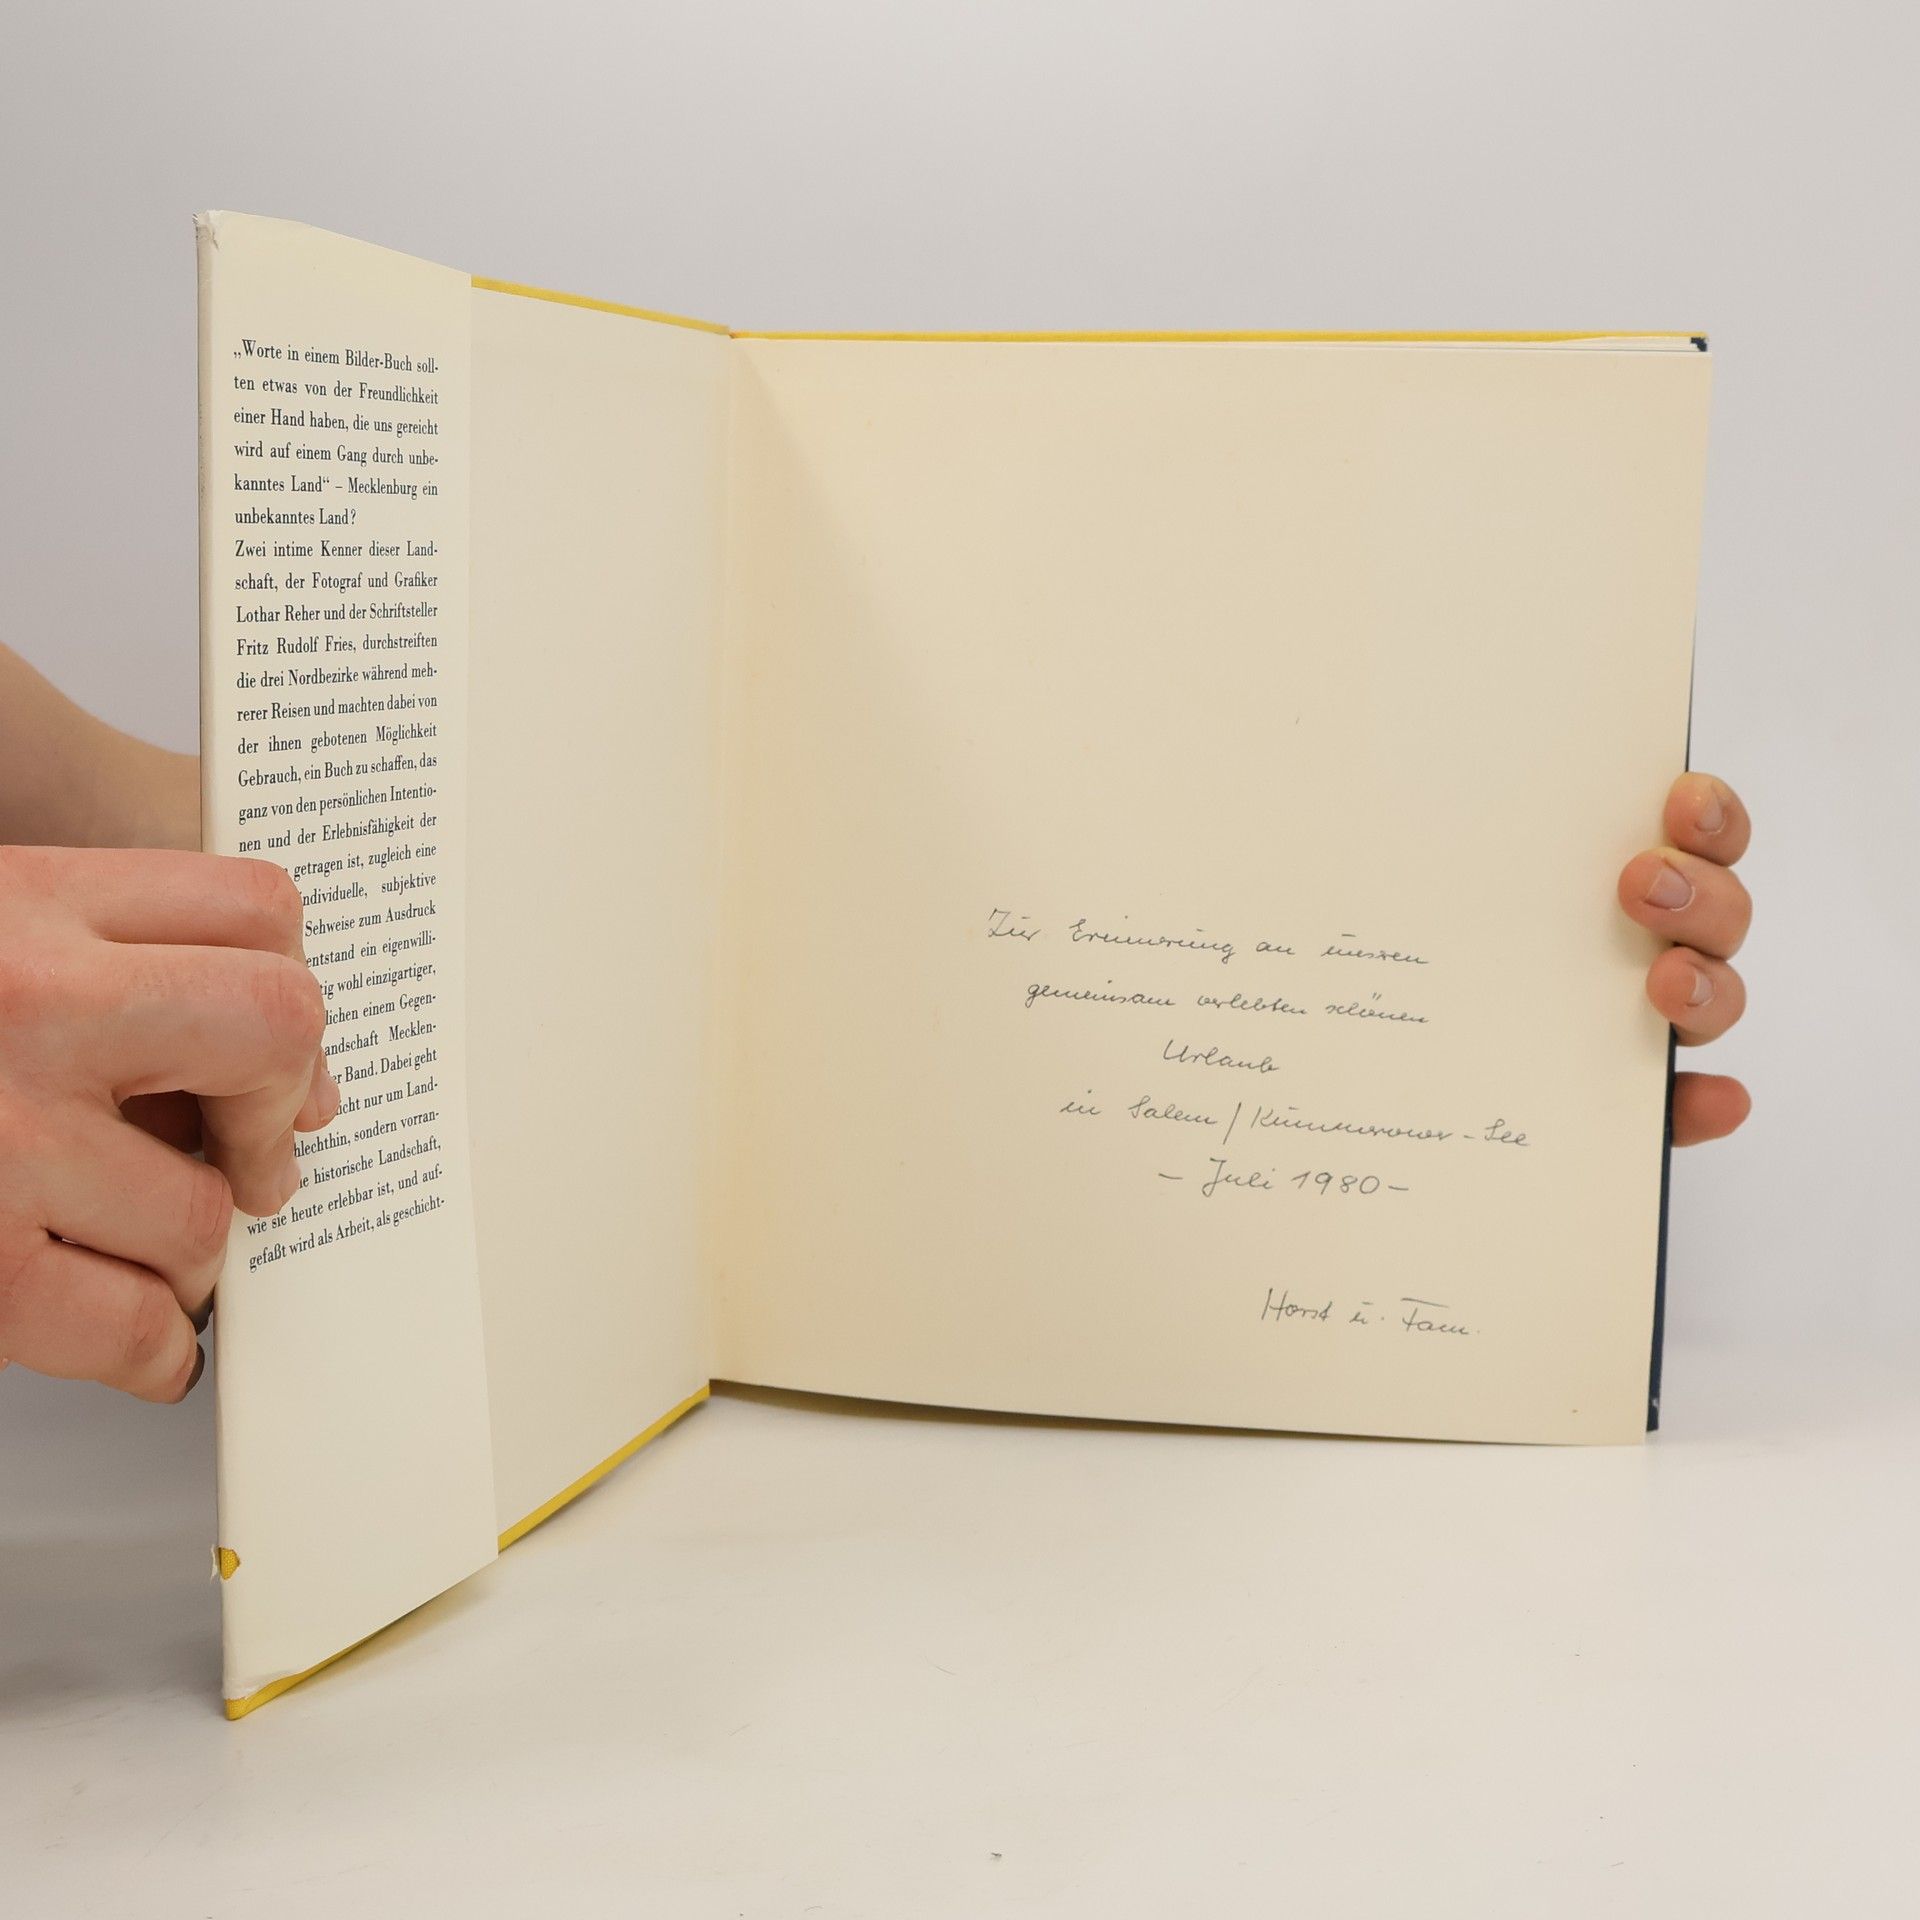 „Worte in einem Bilder-Buch soll-
ten etwas von der Freundlichkeit
einer Hand haben, die uns gereicht
wird auf einem Gang durch unbe-
kanntes Land“ – Mecklenburg ein
unbekanntes Land?
Zwei intime Kenner dieser Land-
schaft, der Fotograf und Grafiker
Lothar Reher und der Schriftsteller
Fritz Rudolf Fries, durchstreiften
die drei Nordbezirke während meh-
rerer Reisen und machten dabei von
der ihnen gebotenen Möglichkeit
Gebrauch, ein Buch zu schaffen, das
ganz von den persönlichen Intentio-
nen und der Erlebnisfähigkeit der
getragen ist, zugleich eine
individuelle, subjektive
Sehweise zum Ausdruck
entstand ein eigenwilli-
wohl einzigartiger,
einem Gegen-
Mecklen-
Band. Dabei geht
nur um Land-
sondern vorran-
historische Landschaft,
wie sie heute erlebbar ist, und auf-
gefaßt wird als Arbeit, als geschicht-
Zur Erinnerung an unseren
gemeinsam verlebten schönen
Urlaub
in Salem / Kummerower-See
– Juli 1980 –
Horst u. Fam.